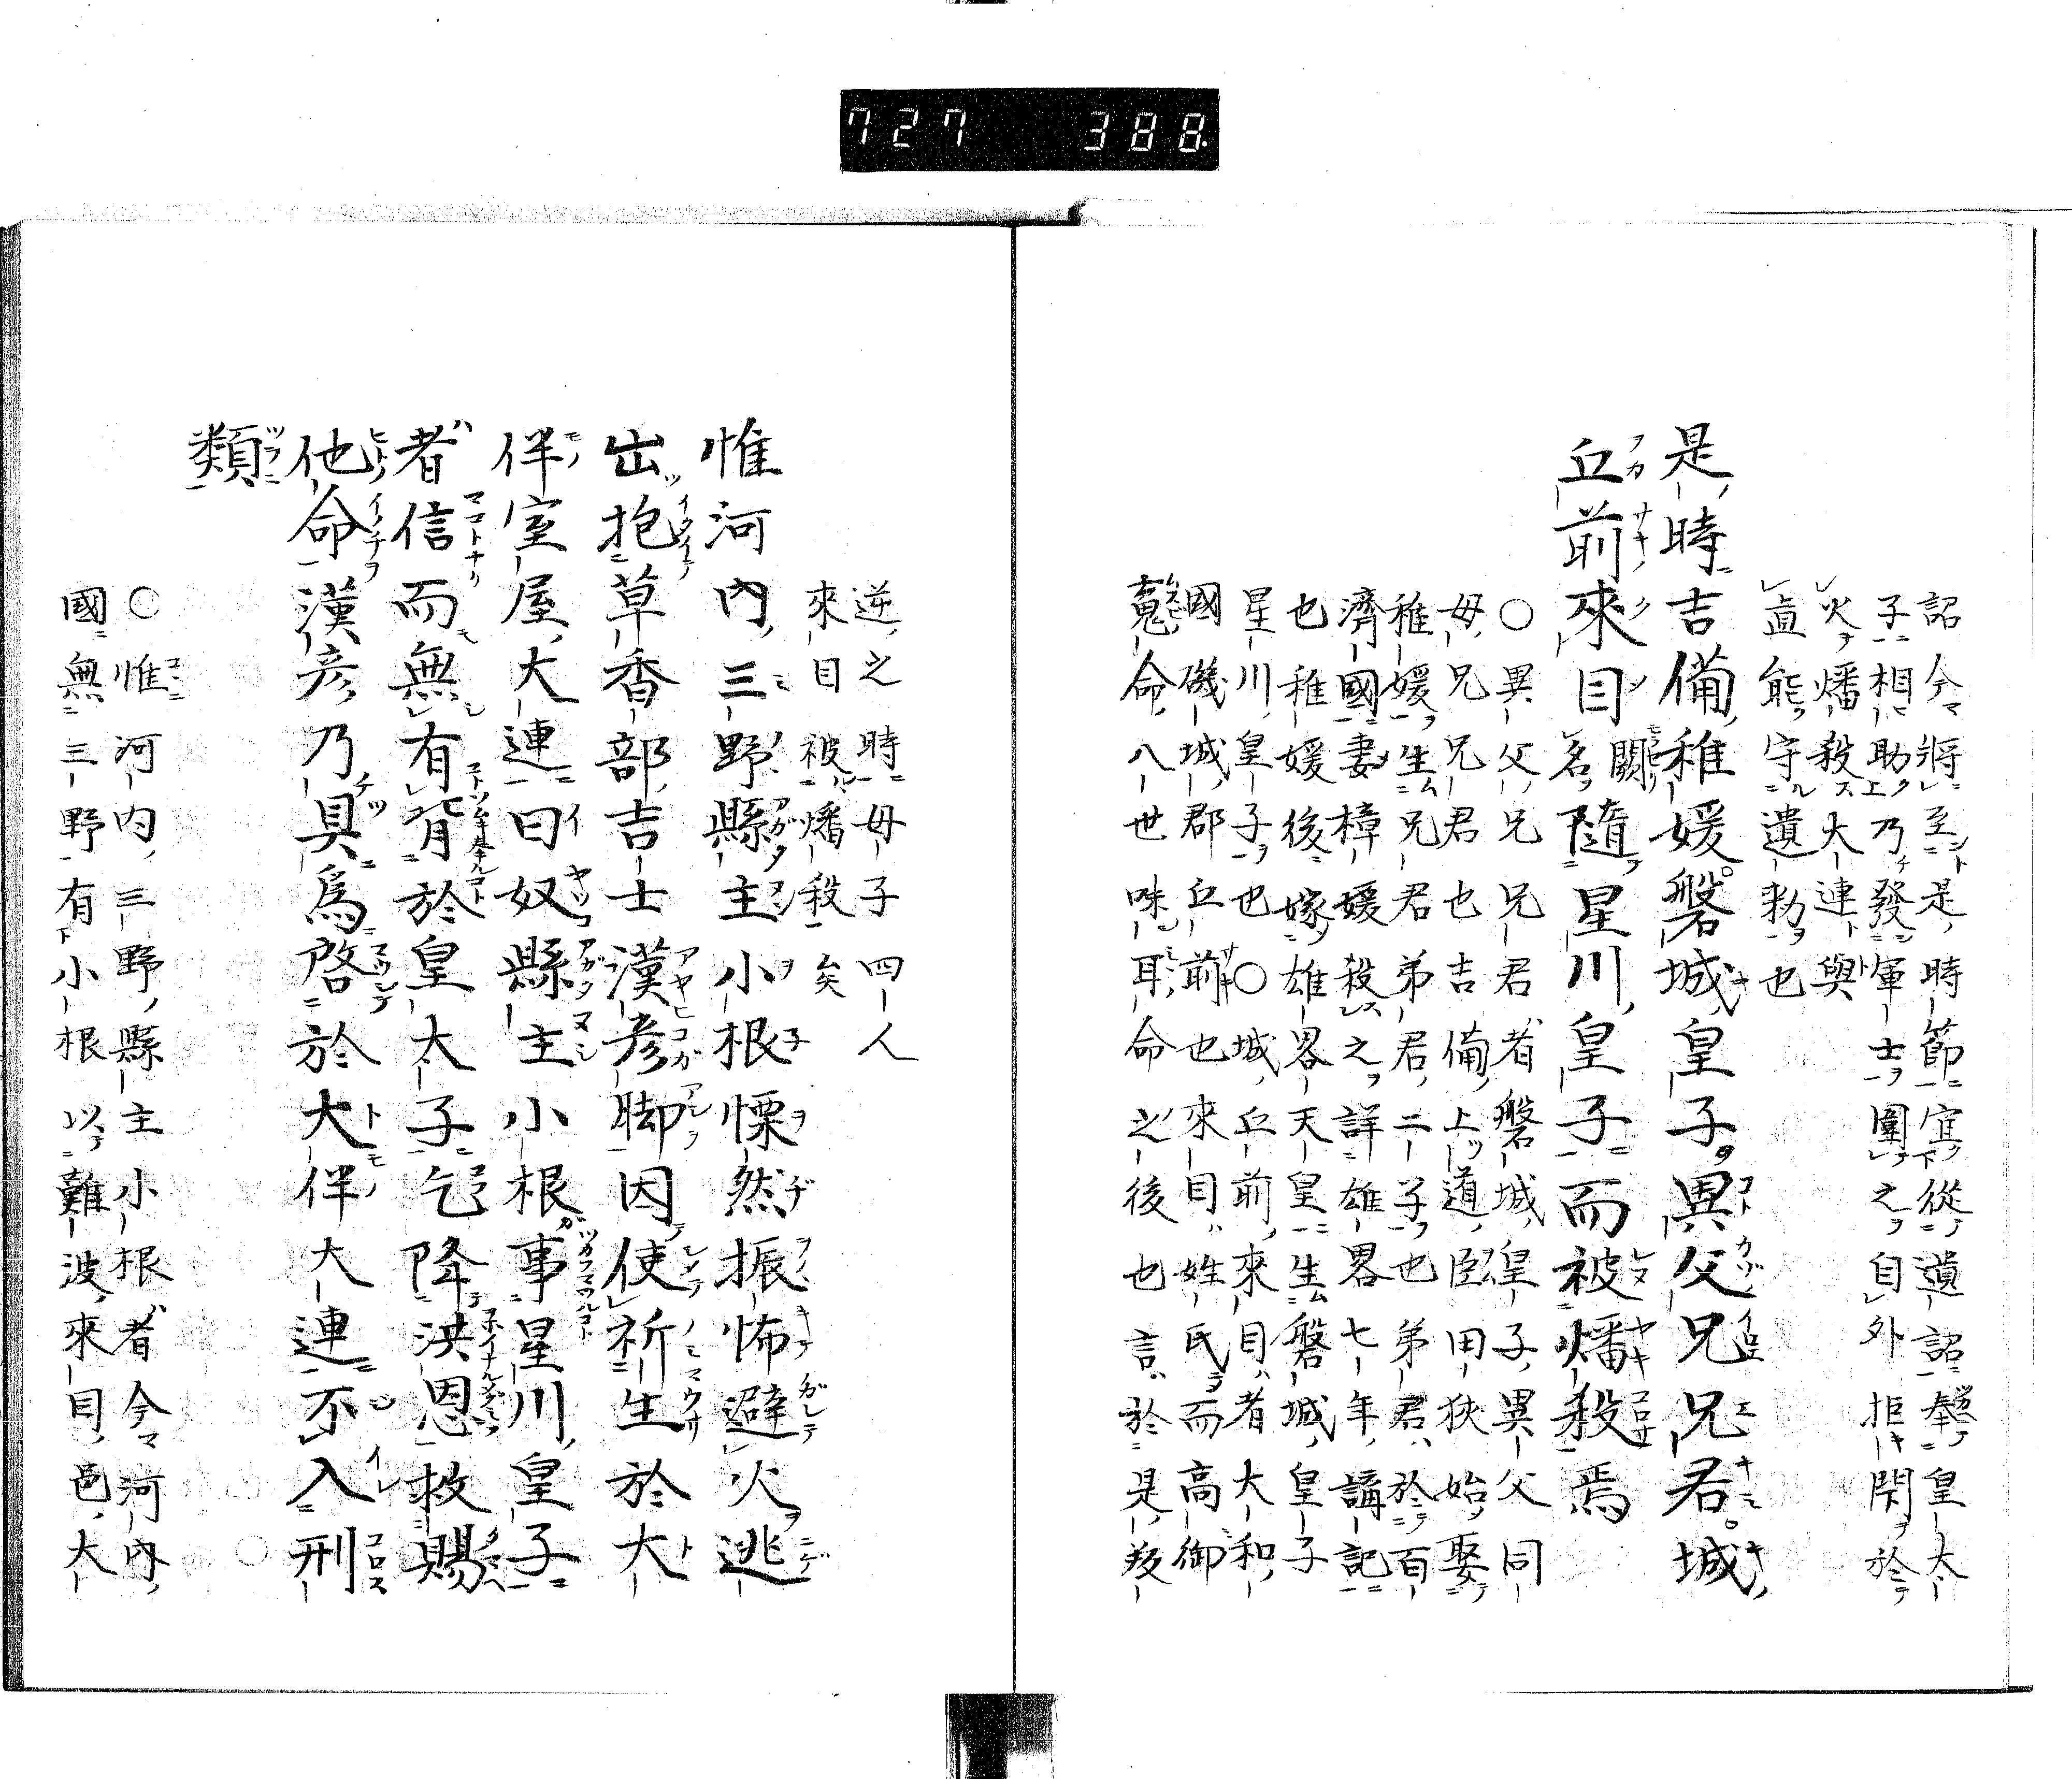 727 388
詔今將至是時節宜從遺詔奉皇太
子相助乃發軍士圍之自外拒閇於
火燔殺大連與
眞能守遺勅也
是時吉備稚媛磐城皇子異父兄兄君城
丘前來目闕名隨星川皇子而被燔殺焉
○異父兄兄君者磐城皇子異父同
母兄兄君也吉備上道臣田狹始娶
稚媛生兄君弟君二子也弟君於百
濟國妻樟媛殺之詳雄畧七年講記
也稚媛後嫁雄畧天皇生磐城皇子
星川皇子也○城丘前來目者大和
國磯城郡丘前也來目姓氏而高御
䰟命八世味耳命之後也言於是
逆之時母子四人
來目被燔殺矣
惟河內三野縣主小根慄然振怖避火逃
出抱草香部吉士漢彦脚因使祈生於大
伴室屋大連曰奴縣主小根事星川皇子
者信而無有背於皇太子乞降洪恩救賜
他命漢彦乃具爲啓於大伴大連不入刑
類
○惟河內三野縣主小根者今河內
國無三野有小根以難波來目邑大